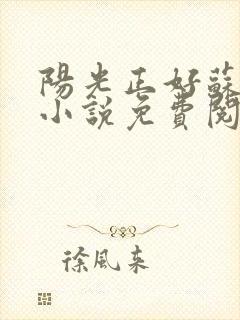 陽光正好蘇
小說免費閱
徐風來